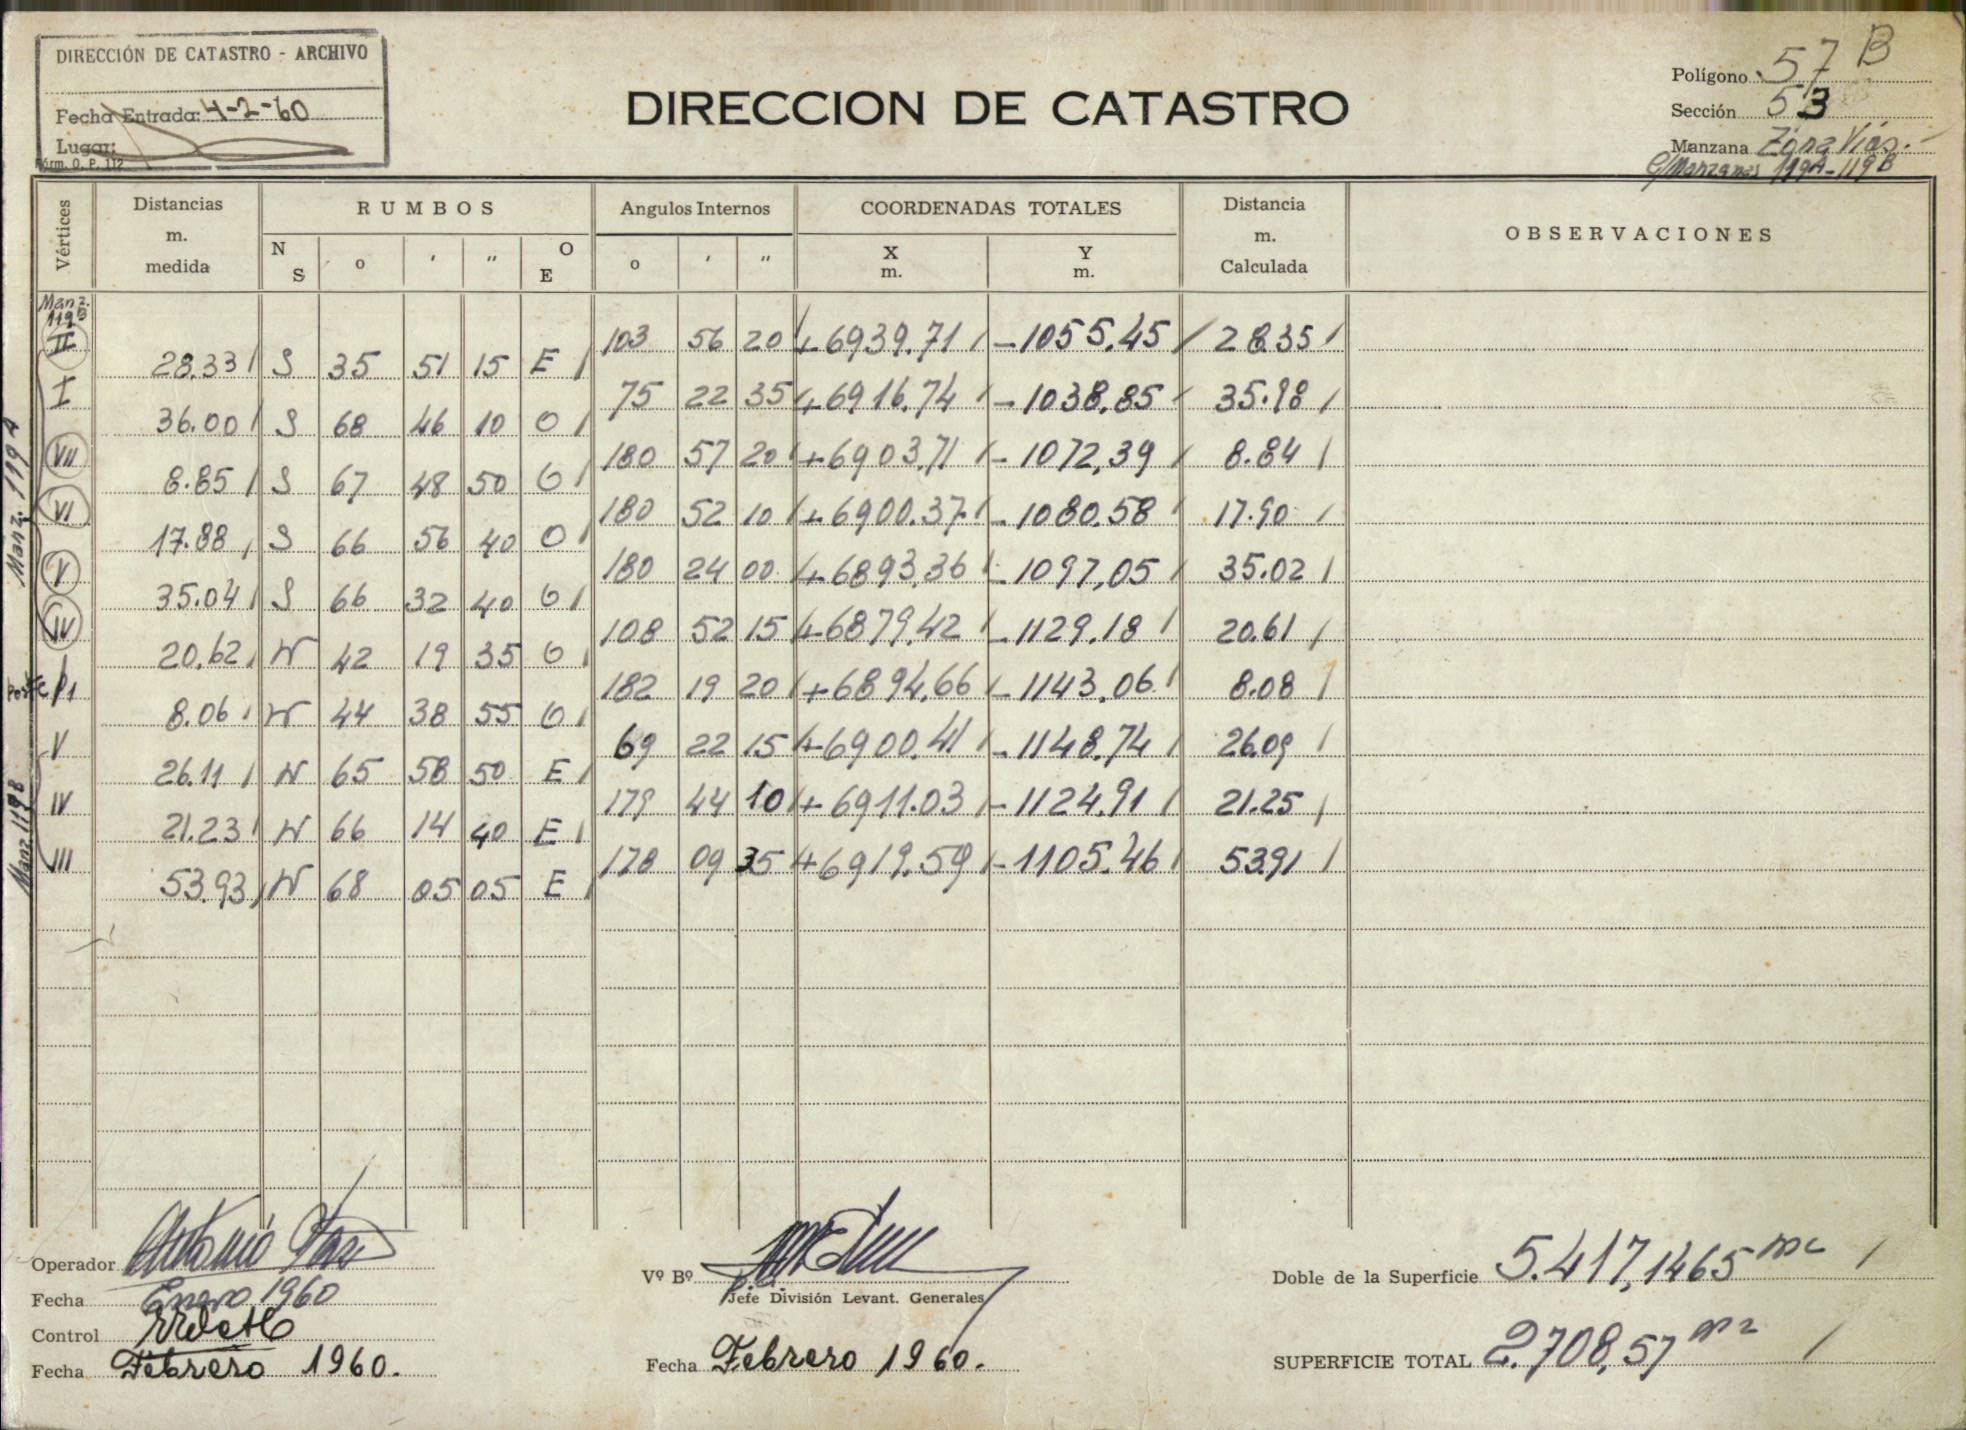 DIRECCIÓN DE CATASTRO - ARCHIVO
Fecha Entrada: 4-2-60
Lugar:
Fórm. O. P. 112
DIRECCION DE CATASTRO
Polígono 57 B
Sección 53
Manzana Zona Vias.-
e/Manzanas 119A-119B
Vértices
Distancias m. medida
RUMBOS
Angulos Internos
COORDENADAS TOTALES
Distancia m. Calculada
OBSERVACIONES
N S o ' " O E
o ' "
X m. Y m.
Manz. 119B
II 103 56 20 +6939.71 -1055.45 28.35
28.33 S 35 51 15 E
I 75 22 35 +6916.74 -1038.85 35.98
36.00 S 68 46 10 O
VII 180 57 20 +6903,71 -1072,39 8.84
8.85 S 67 48 50 O
VI 180 52 10 +6900.37 -1080.58 17.90
17.88 S 66 56 40 O
V 180 24 00 +6893,36 -1097,05 35.02
35.04 S 66 32 40 O
IV 108 52 15 +6879,42 -1129.18 20.61
20.62 N 42 19 35 O
P1 182 19 20 +6894,66 -1143.06 8.08
8.06 N 44 38 55 O
V 69 22 15 +6900.41 -1148.74 26.09
26.11 N 65 58 50 E
IV 179 44 10 +6911.03 -1124.91 21.25
21.23 N 66 14 40 E
III 178 09 35 +6919.59 -1105.46 53.91
53.93 N 68 05 05 E
Manz. 119A
Manz. 119B
Operador Antonio
Fecha Enero 1960
Control
Fecha Febrero 1960.
Vº Bº
p.a.
Jefe División Levant. Generales
Fecha Febrero 1960.
Doble de la Superficie 5.417,1465 m2
SUPERFICIE TOTAL 2.708,57 m2